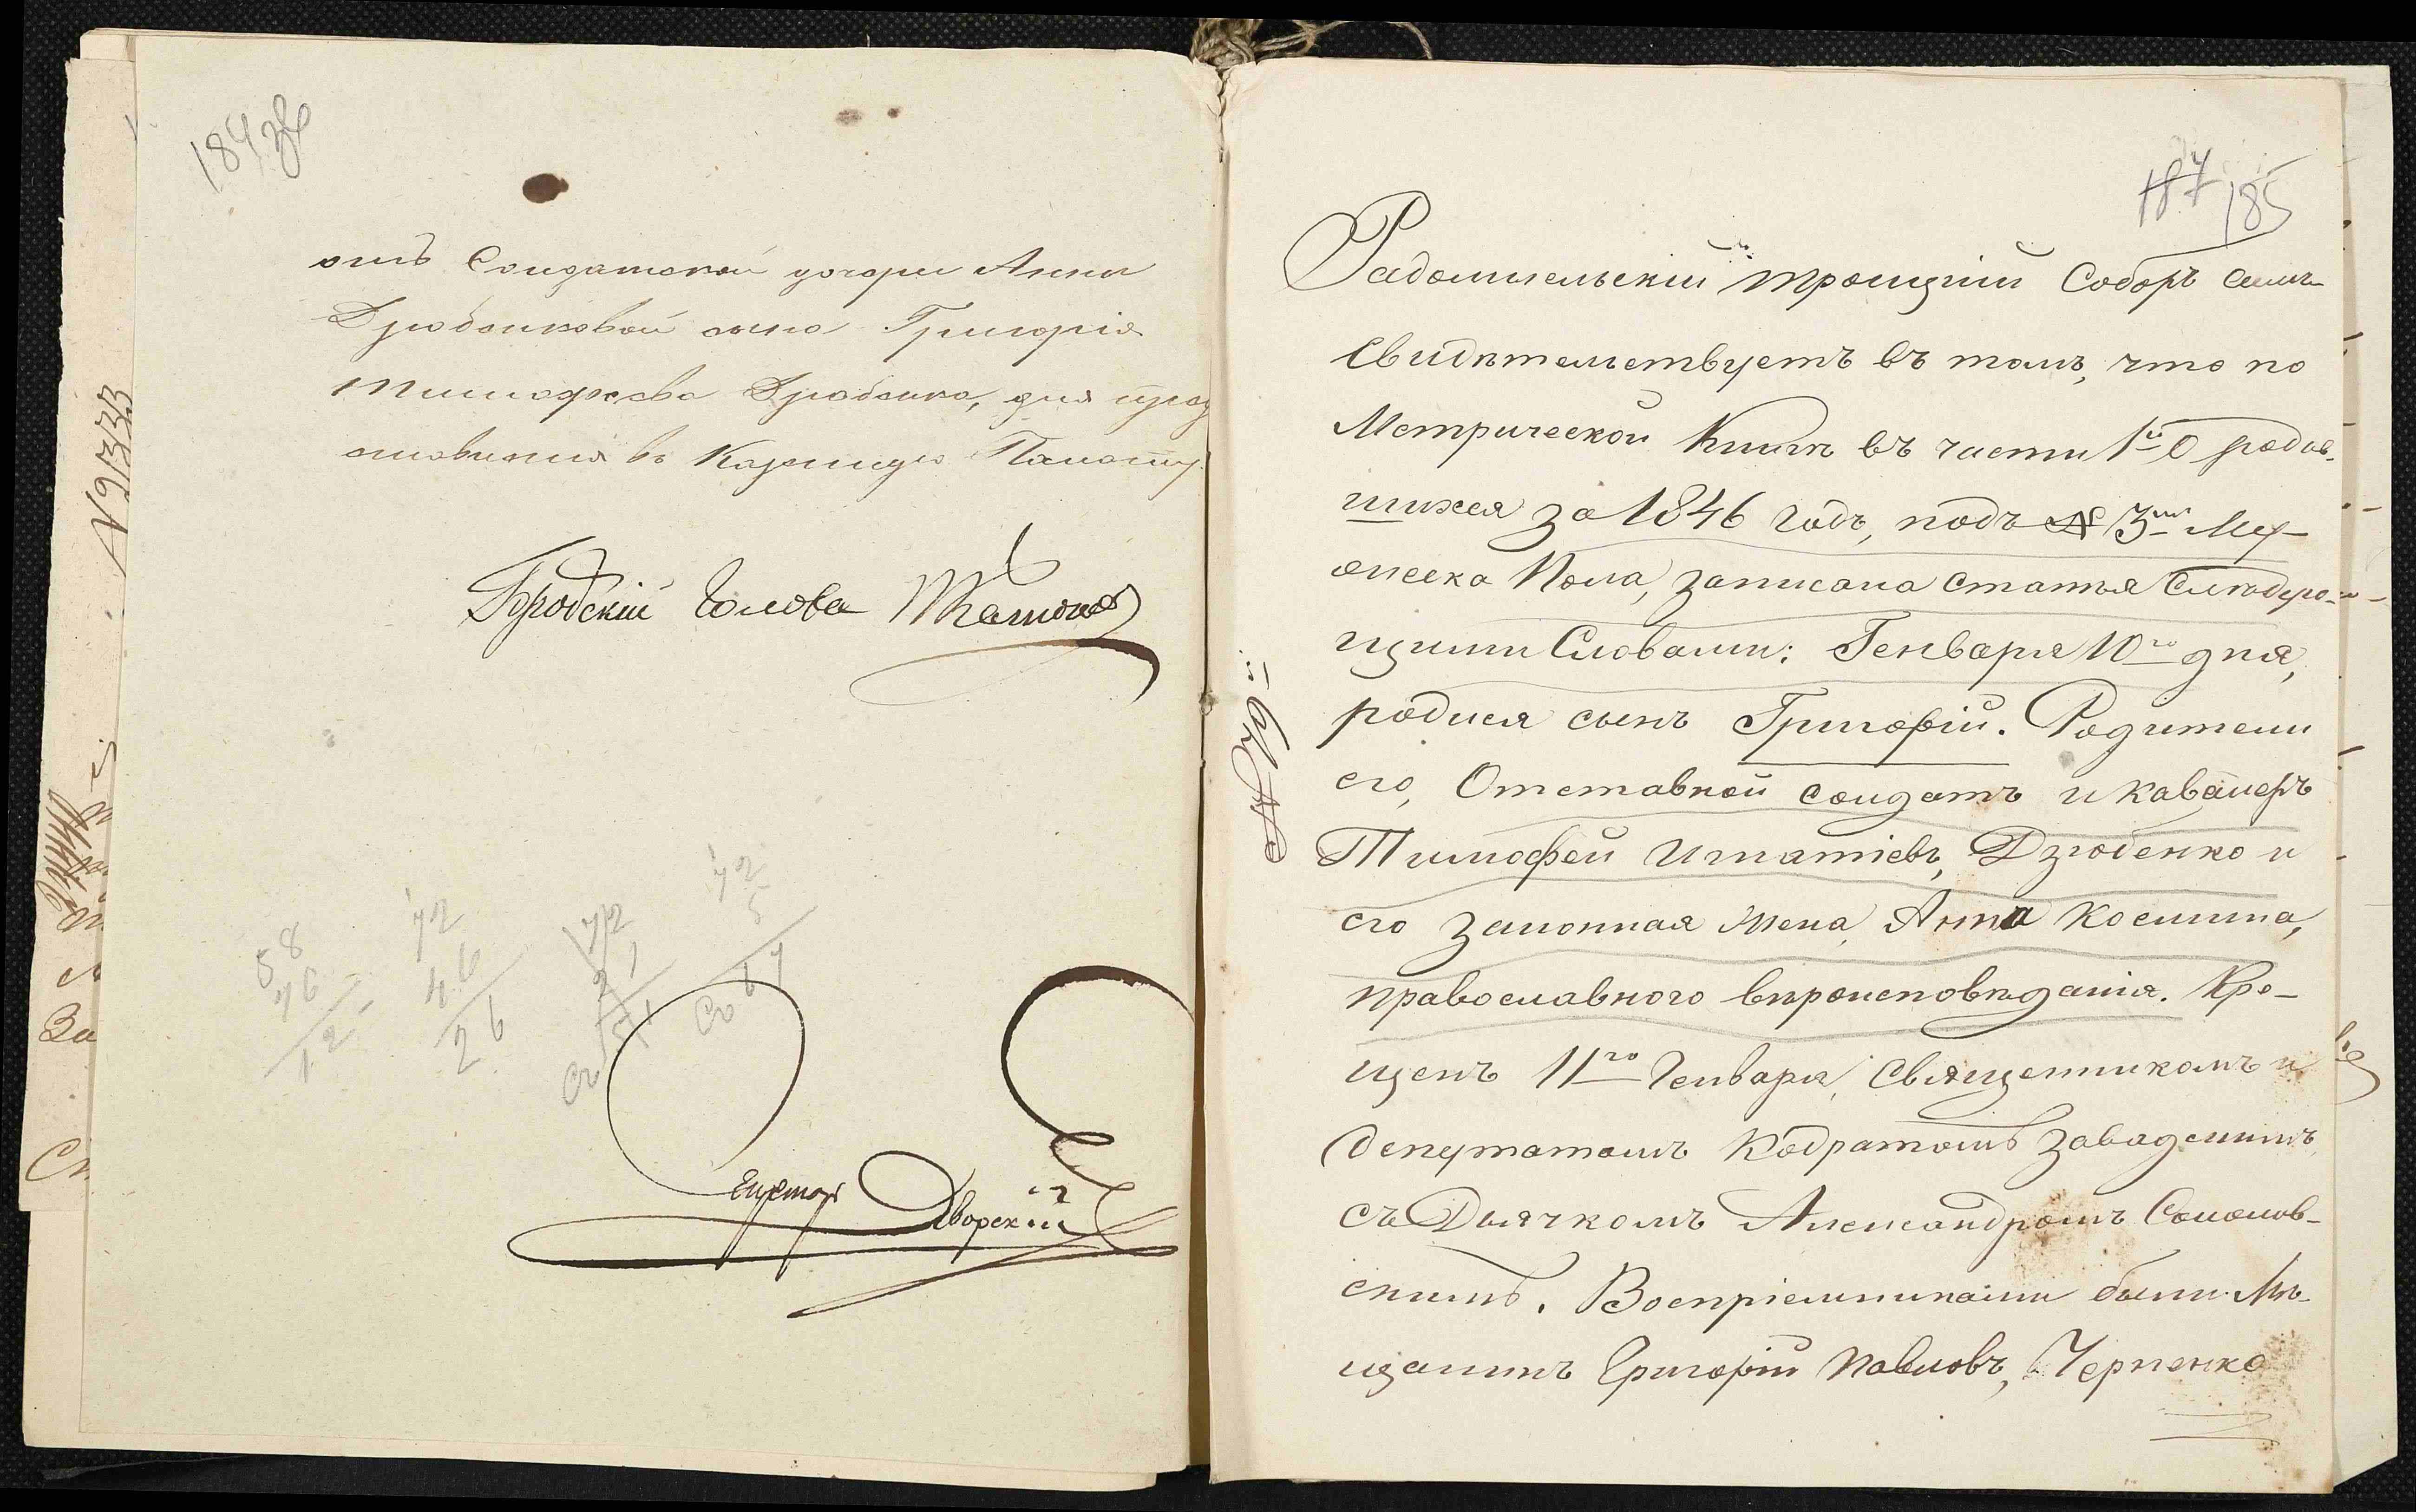 184 зв
отъ Солдатской дочери Анны
Дзюбенковой сына Григорія
Тимофеева Дзюбенка, для пред
ставленія въ Казенную Палату.
Городской Голова
Дворскій
58
46
12
72
46
26
72
21
51
72
5
67
187 185
Радомысльскій Троицкій Соборъ симъ
Свидѣтельствуетъ въ томъ, что по
Метрической Книгѣ въ части 1й О родив-
шихся за 1846 годъ, подъ № 3мъ Му-
жеска Пола, записана статья Слѣдую-
щими Словами: Генваря 10го дня,
родися сынъ Григорій. Родители
его, Отставной солдатъ и кавалеръ
Тимофей Игнатіевъ, Дзюбенко и
его законная жена, Анна Косьмина,
православного вѣроисповѣданія. Кре-
щенъ 11го Генваря, Священникомъ и
депутатомъ Кодратомъ
съ Дьячкомъ Александромъ Соколов-
скимъ. Воспріемниками были: Мѣ-
щанинъ Григорій Павловъ, Черненко
№ 79й
N 91333
За